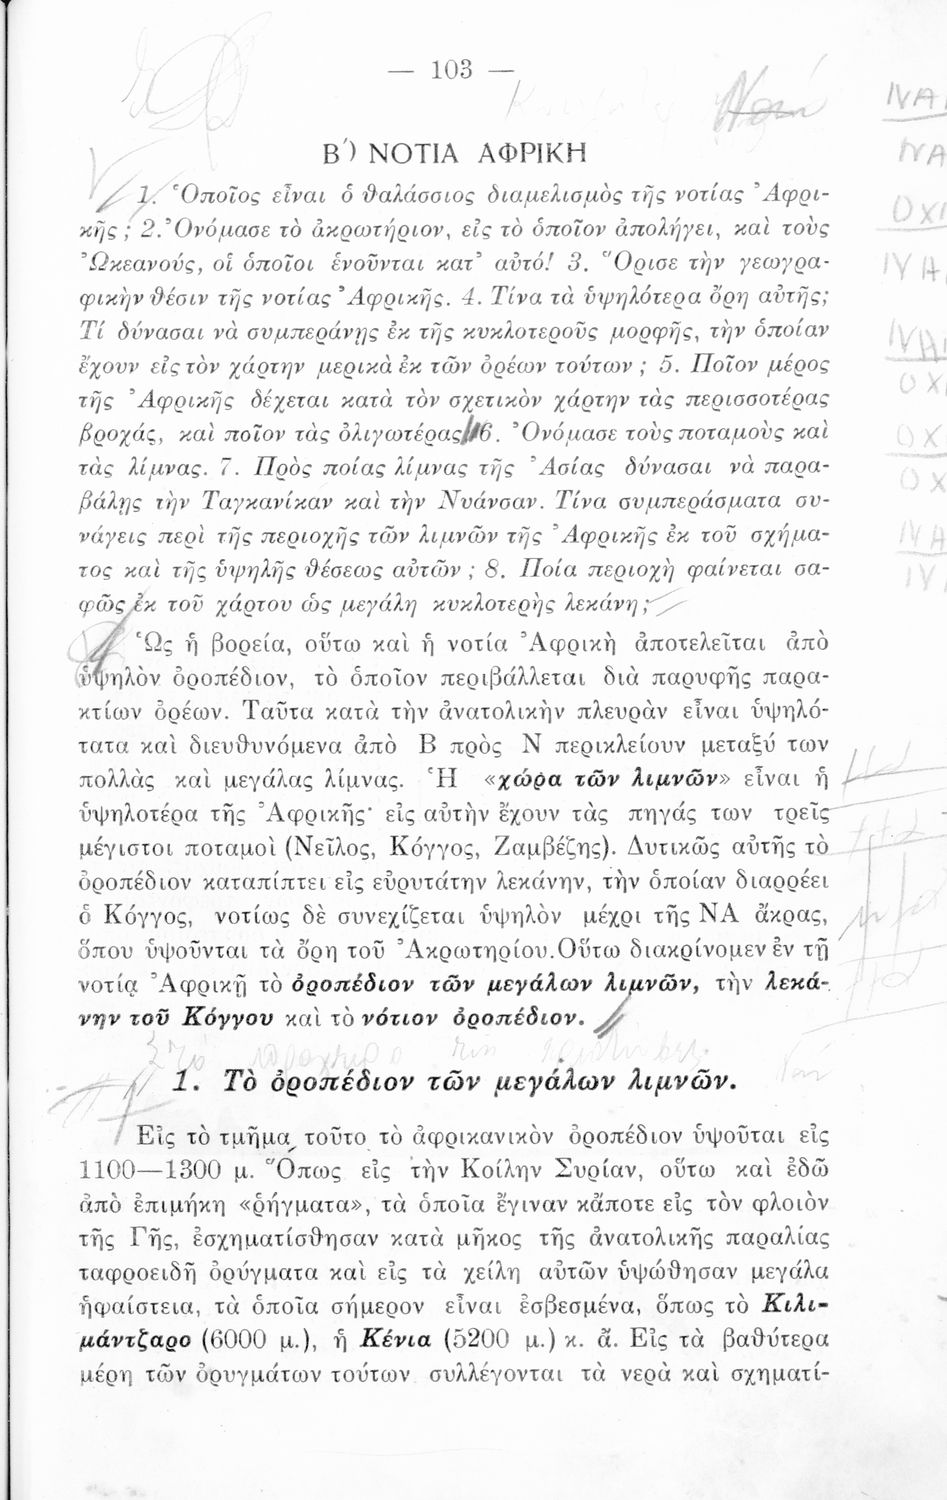 — 103 —
Β΄) ΝΟΤΙΑ ΑΦΡΙΚΗ
1. Ὁποῖος εἶναι ὁ θαλάσσιος διαμελισμὸς τῆς νοτίας Ἀφρι-
κῆς; 2. Ὀνόμασε τὸ ἀκρωτήριον, εἰς τὸ ὁποῖον ἀπολήγει, καὶ τοὺς
Ὠκεανούς, οἱ ὁποῖοι ἑνοῦνται κατ᾽ αὐτό! 3. Ὅρισε τὴν γεωγρα-
φικὴν θέσιν τῆς νοτίας Ἀφρικῆς. 4. Τίνα τὰ ὑψηλότερα ὄρη αὐτῆς;
Τί δύνασαι νὰ συμπεράνῃς ἐκ τῆς κυκλοτεροῦς μορφῆς, τὴν ὁποίαν
ἔχουν εἰς τὸν χάρτην μερικὰ ἐκ τῶν ὀρέων τούτων; 5. Ποῖον μέρος
τῆς Ἀφρικῆς δέχεται κατὰ τὸν σχετικὸν χάρτην τὰς περισσοτέρας
βροχάς, καὶ ποῖον τὰς ὀλιγωτέρας 6. Ὀνόμασε τοὺς ποταμοὺς καὶ
τὰς λίμνας. 7. Πρὸς ποίας λίμνας τῆς Ἀσίας δύνασαι νὰ παρα-
βάλῃς τὴν Ταγκανίκαν καὶ τὴν Νυάνσαν. Τίνα συμπεράσματα συ-
νάγεις περὶ τῆς περιοχῆς τῶν λιμνῶν τῆς Ἀφρικῆς ἐκ τοῦ σχήμα-
τος καὶ τῆς ὑψηλῆς θέσεως αὐτῶν; 8. Ποία περιοχὴ φαίνεται σα-
φῶς ἐκ τοῦ χάρτου ὡς μεγάλη κυκλοτερὴς λεκάνη;
Ὡς ἡ βορεία, οὕτω καὶ ἡ νοτία Ἀφρικὴ ἀποτελεῖται ἀπὸ
ὑψηλὸν ὀροπέδιον, τὸ ὁποῖον περιβάλλεται διὰ παρυφῆς παρα-
κτίων ὀρέων. Ταῦτα κατὰ τὴν ἀνατολικὴν πλευρὰν εἶναι ὑψηλό-
τατα καὶ διευθυνόμενα ἀπὸ Β πρὸς Ν περικλείουν μεταξύ των
πολλὰς καὶ μεγάλας λίμνας. Ἡ «χώρα τῶν λιμνῶν» εἶναι ἡ
ὑψηλοτέρα τῆς Ἀφρικῆς· εἰς αὐτὴν ἔχουν τὰς πηγάς των τρεῖς
μέγιστοι ποταμοὶ (Νεῖλος, Κόγγος, Ζαμβέζης). Δυτικῶς αὐτῆς τὸ
ὀροπέδιον καταπίπτει εἰς εὐρυτάτην λεκάνην, τὴν ὁποίαν διαρρέει
ὁ Κόγγος, νοτίως δὲ συνεχίζεται ὑψηλὸν μέχρι τῆς ΝΑ ἄκρας,
ὅπου ὑψοῦνται τὰ ὄρη τοῦ Ἀκρωτηρίου. Οὕτω διακρίνομεν ἐν τῇ
νοτίᾳ Ἀφρικῇ τὸ ὀροπέδιον τῶν μεγάλων λιμνῶν, τὴν λεκά-
νην τοῦ Κόγγου καὶ τὸ νότιον ὀροπέδιον.
1. Τὸ ὀροπέδιον τῶν μεγάλων λιμνῶν.
Εἰς τὸ τμῆμα τοῦτο τὸ ἀφρικανικὸν ὀροπέδιον ὑψοῦται εἰς
1100—1300 μ. Ὅπως εἰς τὴν Κοίλην Συρίαν, οὕτω καὶ ἐδῶ
ἀπὸ ἐπιμήκη «ῥήγματα», τὰ ὁποῖα ἔγιναν κἄποτε εἰς τὸν φλοιὸν
τῆς Γῆς, ἐσχηματίσθησαν κατὰ μῆκος τῆς ἀνατολικῆς παραλίας
ταφροειδῆ ὀρύγματα καὶ εἰς τὰ χείλη αὐτῶν ὑψώθησαν μεγάλα
ἡφαίστεια, τὰ ὁποῖα σήμερον εἶναι ἐσβεσμένα, ὅπως τὸ Κιλι-
μάντζαρο (6000 μ.), ἡ Κένια (5200 μ.) κ. ἄ. Εἰς τὰ βαθύτερα
μέρη τῶν ὀρυγμάτων τούτων συλλέγονται τὰ νερὰ καὶ σχηματί-